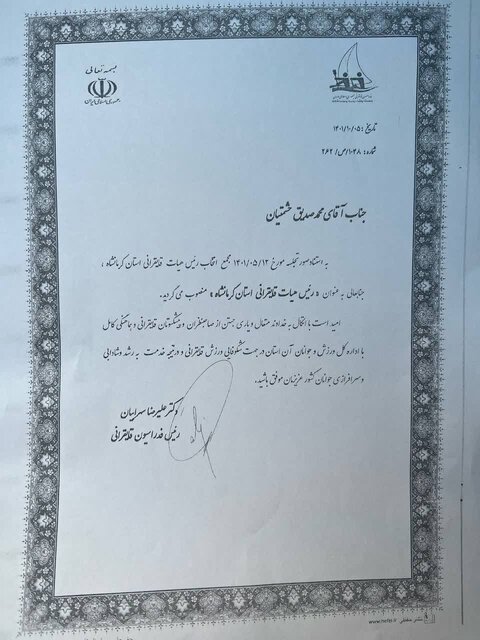 بسمه تعالی
جمهوری اسلامی ایران
تاریخ : ۱۴۰۱/۱۰/۰۵
شماره : ۱۰۴۸/ص/۲۶۲
جناب آقای محمدصدیق حشمتیان
به استناد صورتجلسه مورخ ۱۴۰۱/۰۵/۱۲ مجمع انتخاب رئیس هیات قایقرانی استان کرمانشاه ،
جنابعالی به عنوان « رئیس هیات قایقرانی استان کرمانشاه » منصوب می گردید.
امید است با اتکال به خداوند متعال و یاری جستن از صاحبنظران و پیشکسوتان قایقرانی و هماهنگی کامل
با اداره کل ورزش و جوانان آن استان در جهت شکوفایی ورزش قایقرانی و در نتیجه خدمت به رشد و شادابی
و سرافرازی جوانان کشور عزیزمان موفق باشید.
دکتر علیرضا سهرابیان
رئیس فدراسیون قایقرانی
www.nefisi.ir